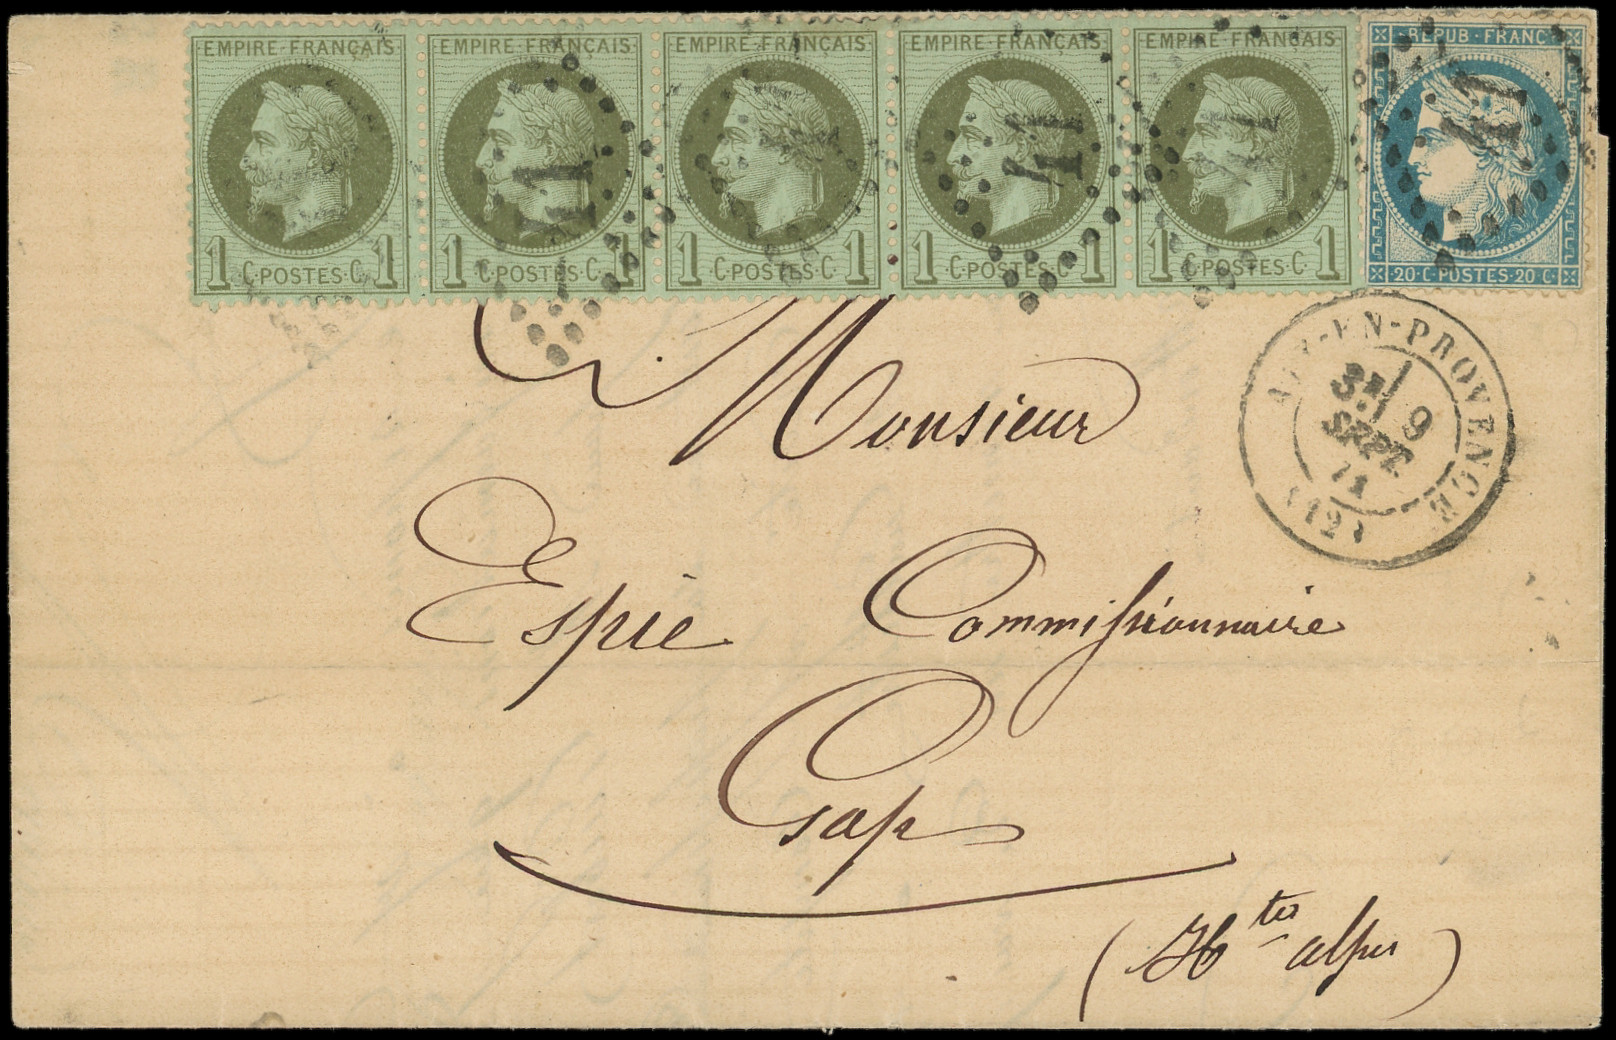 EMPIRE·FRANÇAIS EMPIRE·FRANÇAIS EMPIRE·FRANÇAIS EMPIRE·FRANÇAIS EMPIRE·FRANÇAIS REPUB·FRANC
1 C·POSTES·C 1 1 C·POSTES·C 1 1 C·POSTES·C 1 1 C·POSTES·C 1 1 C·POSTES·C 1 20·C·POSTES·20·C
Monsieur
AIX-EN-PROVENCE
3E
9
SEPT
71
(12)
Espie Commissionnaire
Gap
(Htes alpes)